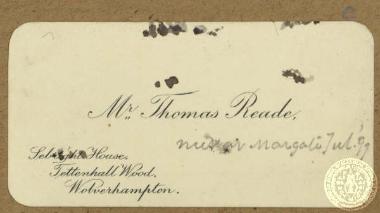 Mr. Thomas Reade,
Margate Jul.'99
House,
Tettenhall Wood,
Wolverhampton.